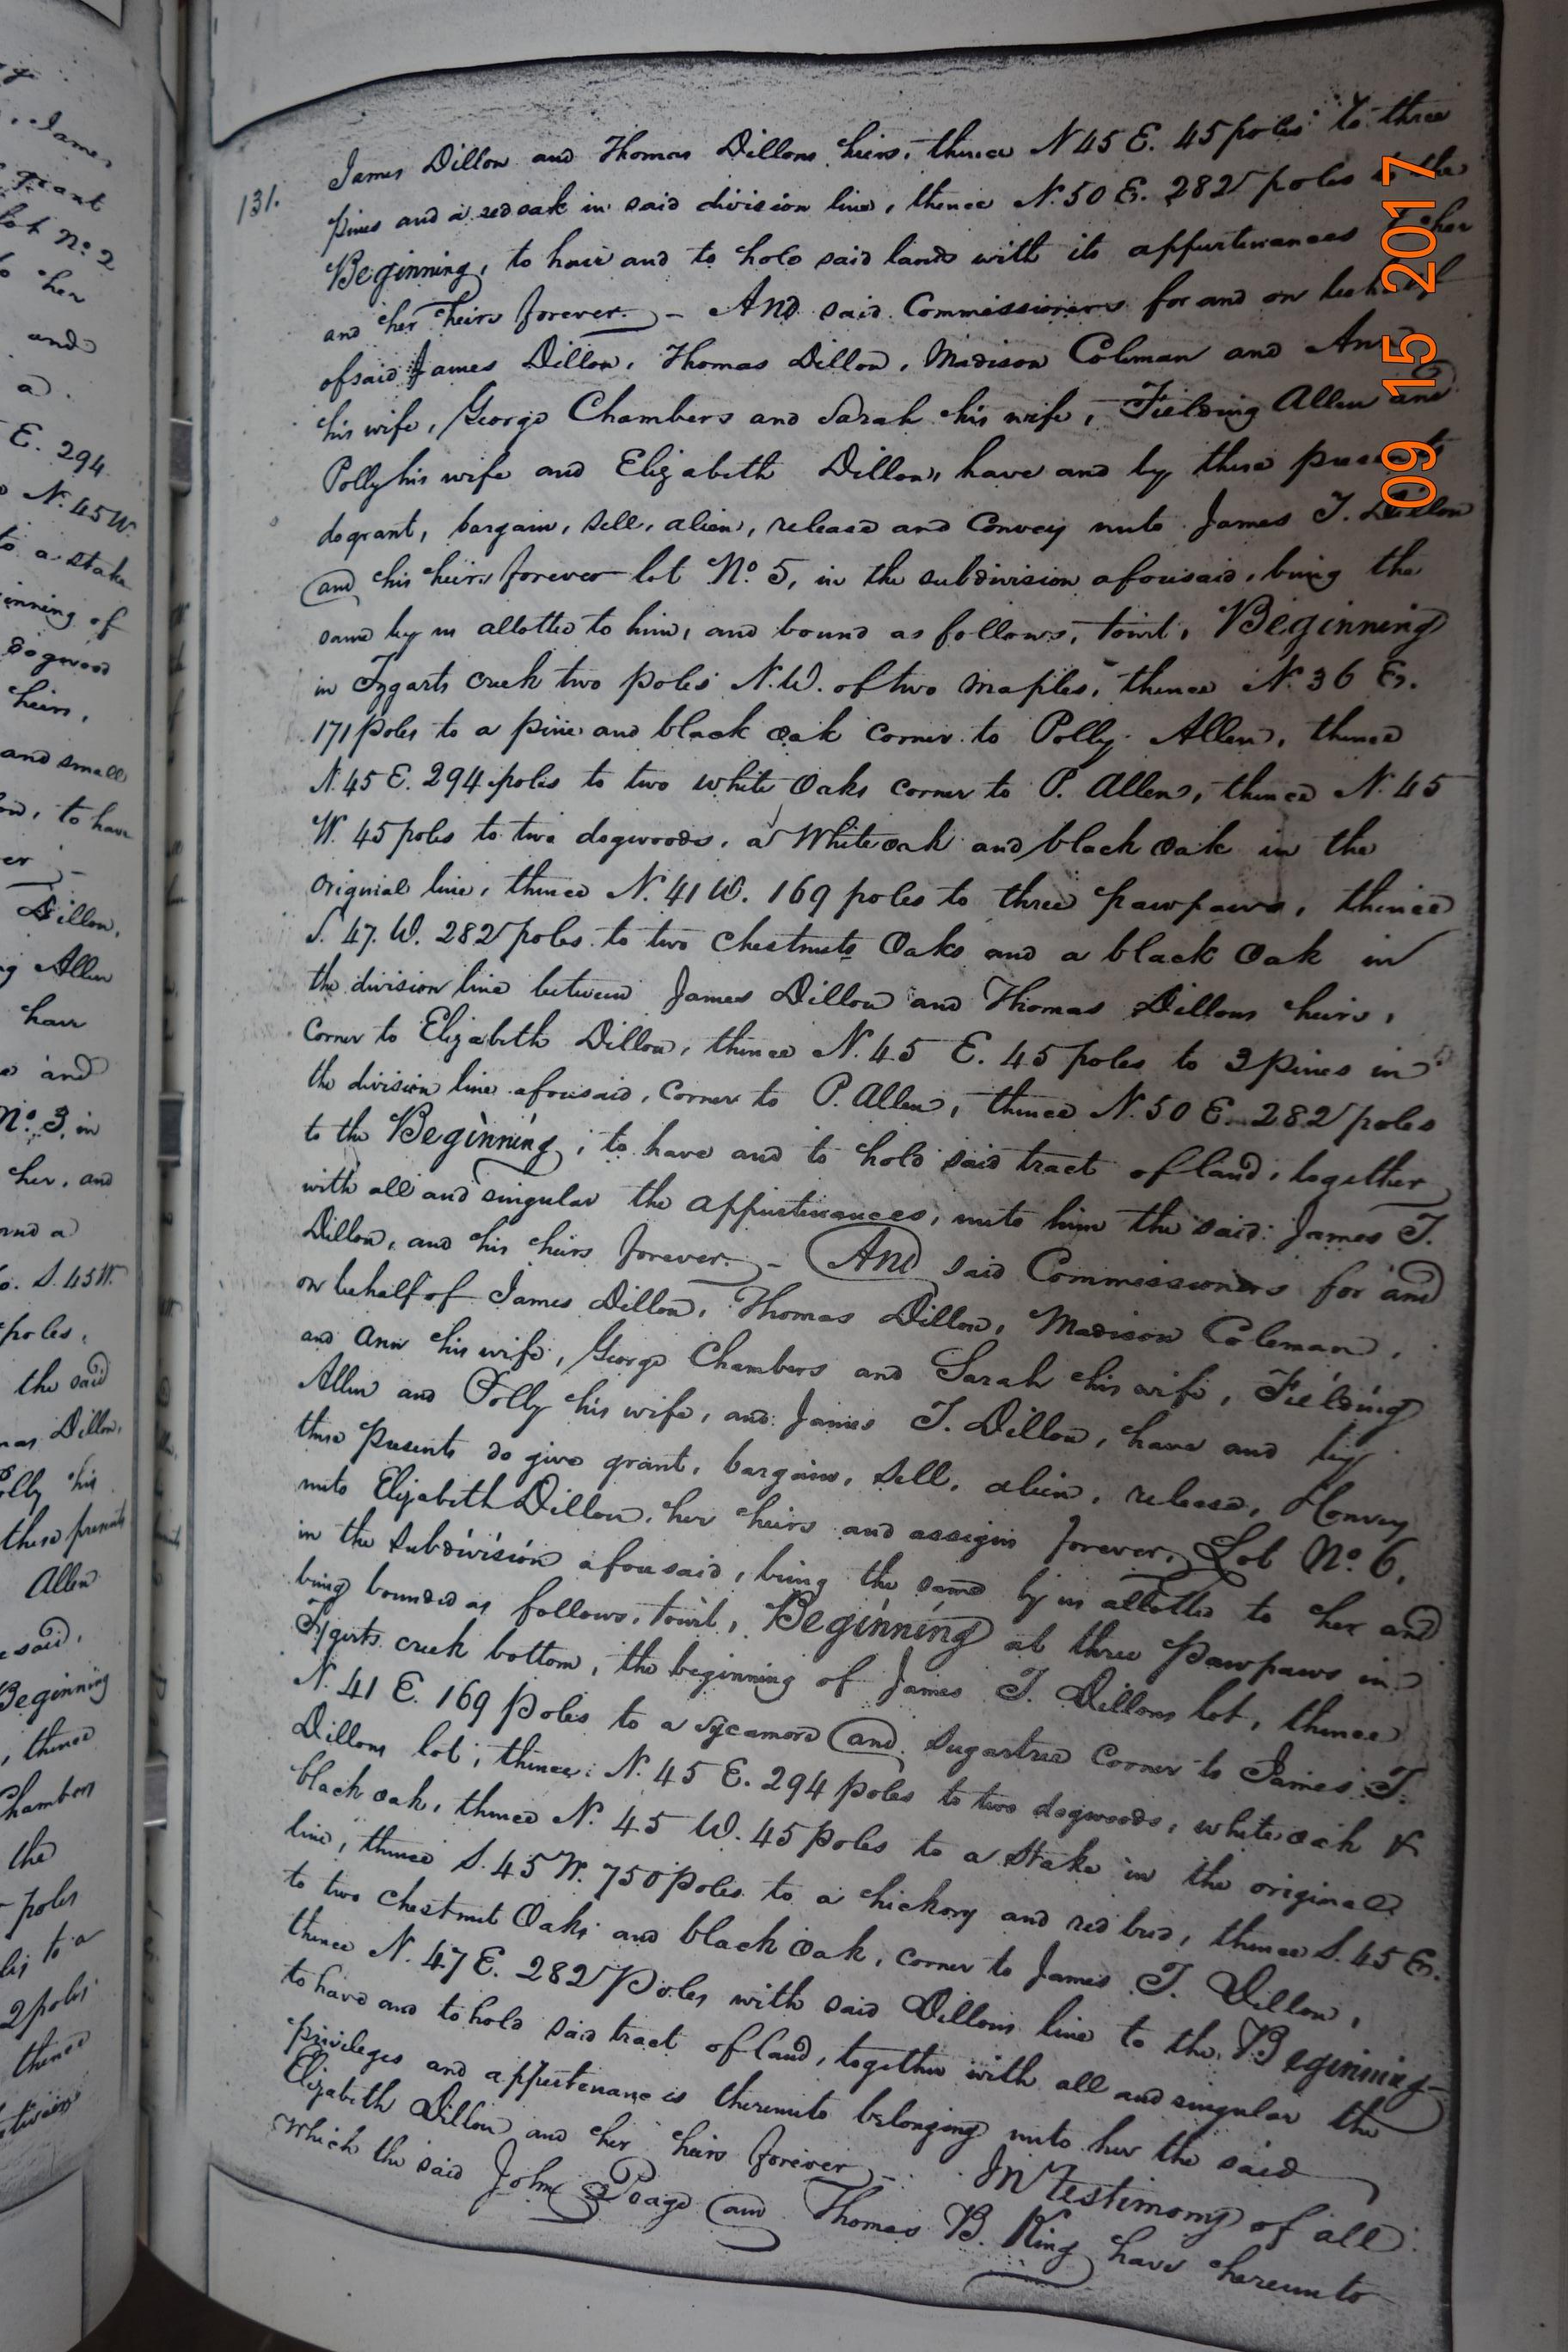 y.
, James
grant
lot No. 2
o her
and
a.
E. 294
N. 45 W.
to a stake
inning of
Dogwood
heirs,
and small
to have
er
Dillon,
g Allen
have
and
No. 3, in
her, and
and a
S. 45 W.
poles,
the said
as Dillon,
olly his
these presents
Allen
said,
Beginning
, thence
Chambers
the
poles
to a
2 poles
thence
131.
James Dillon and Thomas Dillons heirs, thence N 45 E. 45 poles to three
pines and a red oak in said division line, thence N. 50 E. 282 poles to the
Beginning, to have and to hold said lands with its appurtenances to her
and her heirs forever. - And said Commissioners for and on behalf
of said James Dillon, Thomas Dillon, Madison Coleman and Ann
his wife, George Chambers and Sarah his wife, Fielding Allen and
Polly his wife and Elizabeth Dillon, have and by these presents
do grant, bargain, sell, alien, release and Convey unto James T. Dillon
and his heirs forever lot No. 5, in the subdivision aforesaid, being the
same by us allotted to him, and bound as follows, towit, Beginning
in Tygarts creek two poles N.W. of two maples, thence N. 36 E.
171 poles to a pine and black oak corner to Polly Allen, thence
N. 45 E. 294 poles to two white Oaks corner to P. Allen, thence N. 45
W. 45 poles to two dogwoods, a White oak and black Oak in the
original line, thence N. 41 W. 169 poles to three pawpaws, thence
S. 47. W. 282 poles to two chestnuts Oaks and a black Oak in
the division line between James Dillon and Thomas Dillons heirs,
Corner to Elizabeth Dillon, thence N. 45 E. 45 poles to 3 pines in
the division line aforesaid, corner to P. Allen, thence N. 50 E. 282 poles
to the Beginning, to have and to hold said tract of land, together
with all and singular the appurtenances, unto him the said James T.
Dillon, and his heirs forever. - And said Commissioners for and
on behalf of James Dillon, Thomas Dillon, Madison Coleman,
and Ann his wife, George Chambers and Sarah his wife, Fielding
Allen and Polly his wife, and James T. Dillon, have and by
these presents do give grant, bargain, sell, alien, release, Convey
unto Elizabeth Dillon, her heirs and assigns forever, Lot No. 6,
in the subdivision aforesaid, being the same by us allotted to her and
being bounded as follows, towit, Beginning at three pawpaws in
Tygerts creek bottom, the beginning of James T. Dillons lot, thence
N. 41 E. 169 poles to a sycamore and sugartree corner to James T.
Dillons lot, thence N. 45 E. 294 poles to two dogwoods, white oak &
black oak, thence N. 45 W. 45 poles to a stake in the original
line, thence S. 45 W. 750 poles to a hickory and red bud, thence S. 45 E.
to two chestnut Oaks and black Oak, corner to James T. Dillon,
thence N. 47 E. 282 Poles with said Dillons line to the Beginning
to have and to hold said tract of land, together with all and singular the
privileges and appurtenances thereunto belonging unto her the said
Elizabeth Dillon and her heirs forever - In testimony of all
which the said John Poage and Thomas B. King have hereunto
09 15 2017